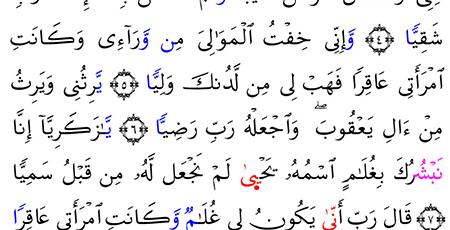 شَقِيًّا ﴿٤﴾ وَإِنِّى خِفْتُ ٱلْمَوَٰلِىَ مِن وَرَآءِى وَكَانَتِ
ٱمْرَأَتِى عَاقِرًا فَهَبْ لِى مِن لَّدُنكَ وَلِيًّا ﴿٥﴾ يَرِثُنِى وَيَرِثُ
مِنْ ءَالِ يَعْقُوبَ ۖ وَٱجْعَلْهُ رَبِّ رَضِيًّا ﴿٦﴾ يَٰزَكَرِيَّآ إِنَّا
نُبَشِّرُكَ بِغُلَٰمٍ ٱسْمُهُۥ يَحْيَىٰ لَمْ نَجْعَل لَّهُۥ مِن قَبْلُ سَمِيًّا
﴿٧﴾ قَالَ رَبِّ أَنَّىٰ يَكُونُ لِى غُلَٰمٌ وَكَانَتِ ٱمْرَأَتِى عَاقِرًا